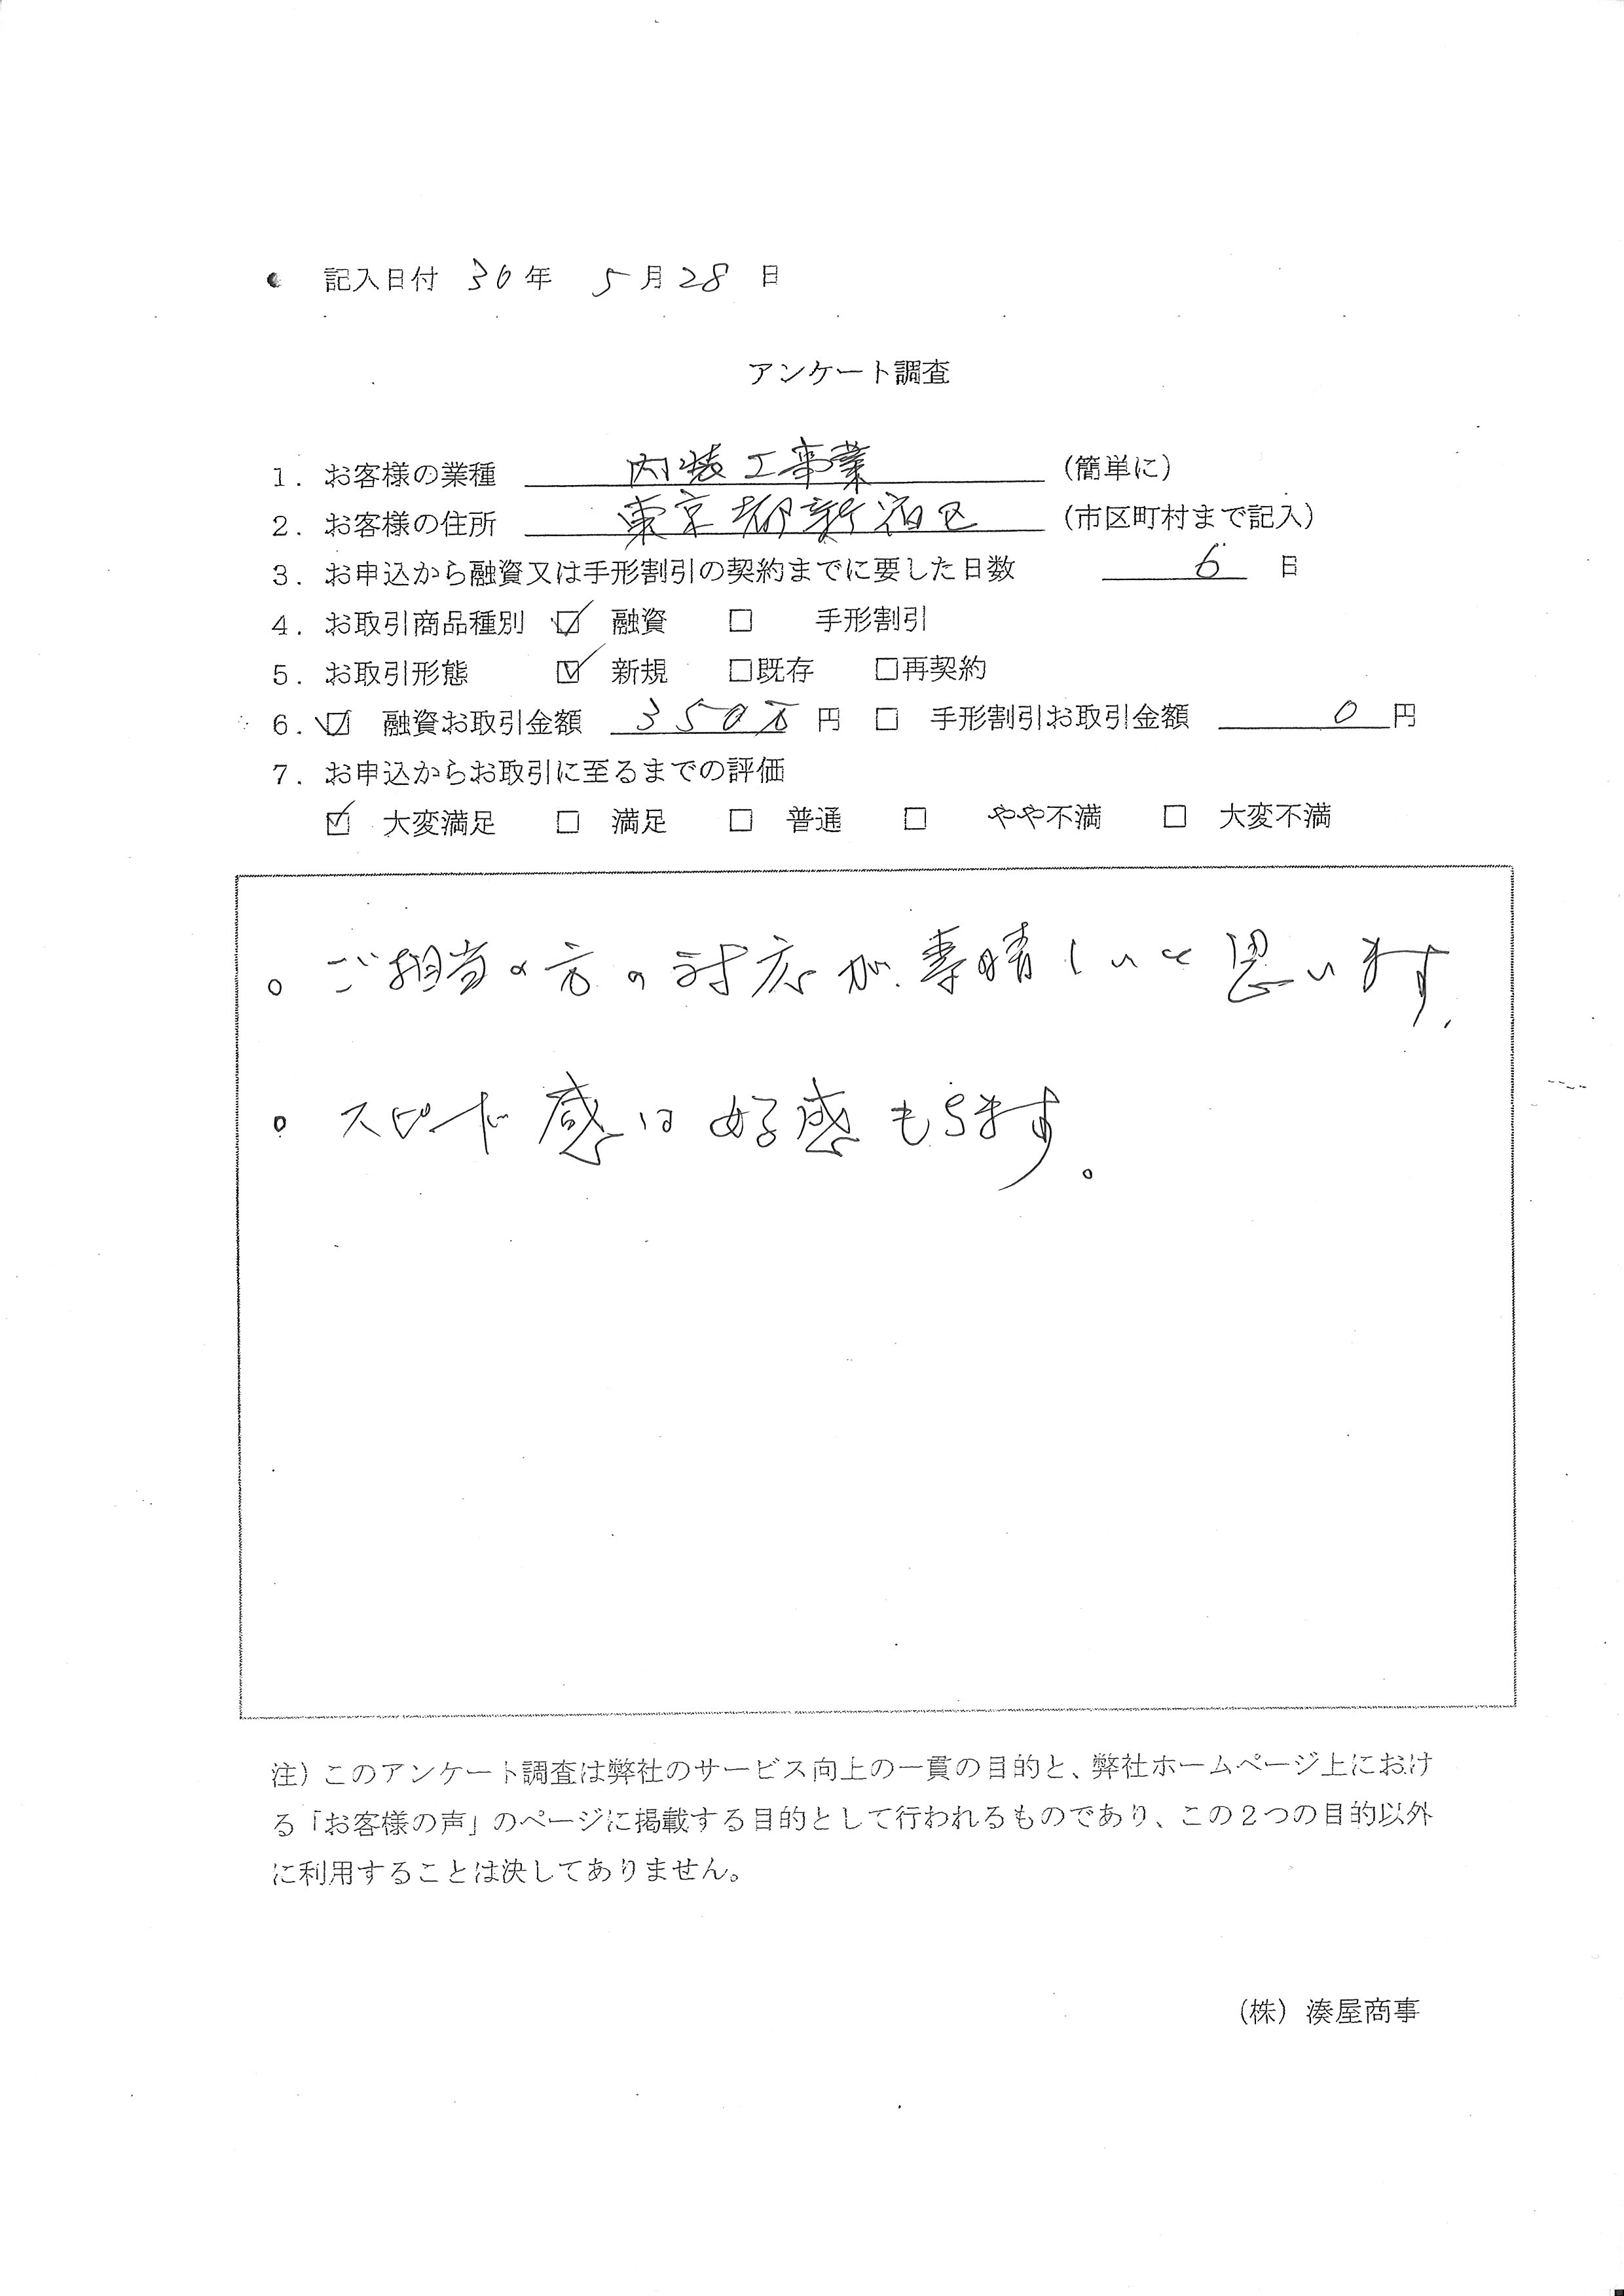 記入日付 30年 5月28日
アンケート調査
1. お客様の業種 内装工事業 (簡単に)
2. お客様の住所 東京都新宿区 (市区町村まで記入)
3. お申込から融資又は手形割引の契約までに要した日数 6 日
4. お取引商品種別 ☑ 融資 □ 手形割引
5. お取引形態 ☑ 新規 □既存 □再契約
6. ☑ 融資お取引金額 350万 円 □ 手形割引お取引金額 0円
7. お申込からお取引に至るまでの評価
☑ 大変満足 □ 満足 □ 普通 □ やや不満 □ 大変不満
。ご担当の方の対応が、素晴しいと思います.
。スピード感は好感もちます。
注)このアンケート調査は弊社のサービス向上の一貫の目的と、弊社ホームページ上におけ
る「お客様の声」のページに掲載する目的として行われるものであり、この2つの目的以外
に利用することは決してありません。
(株)湊屋商事